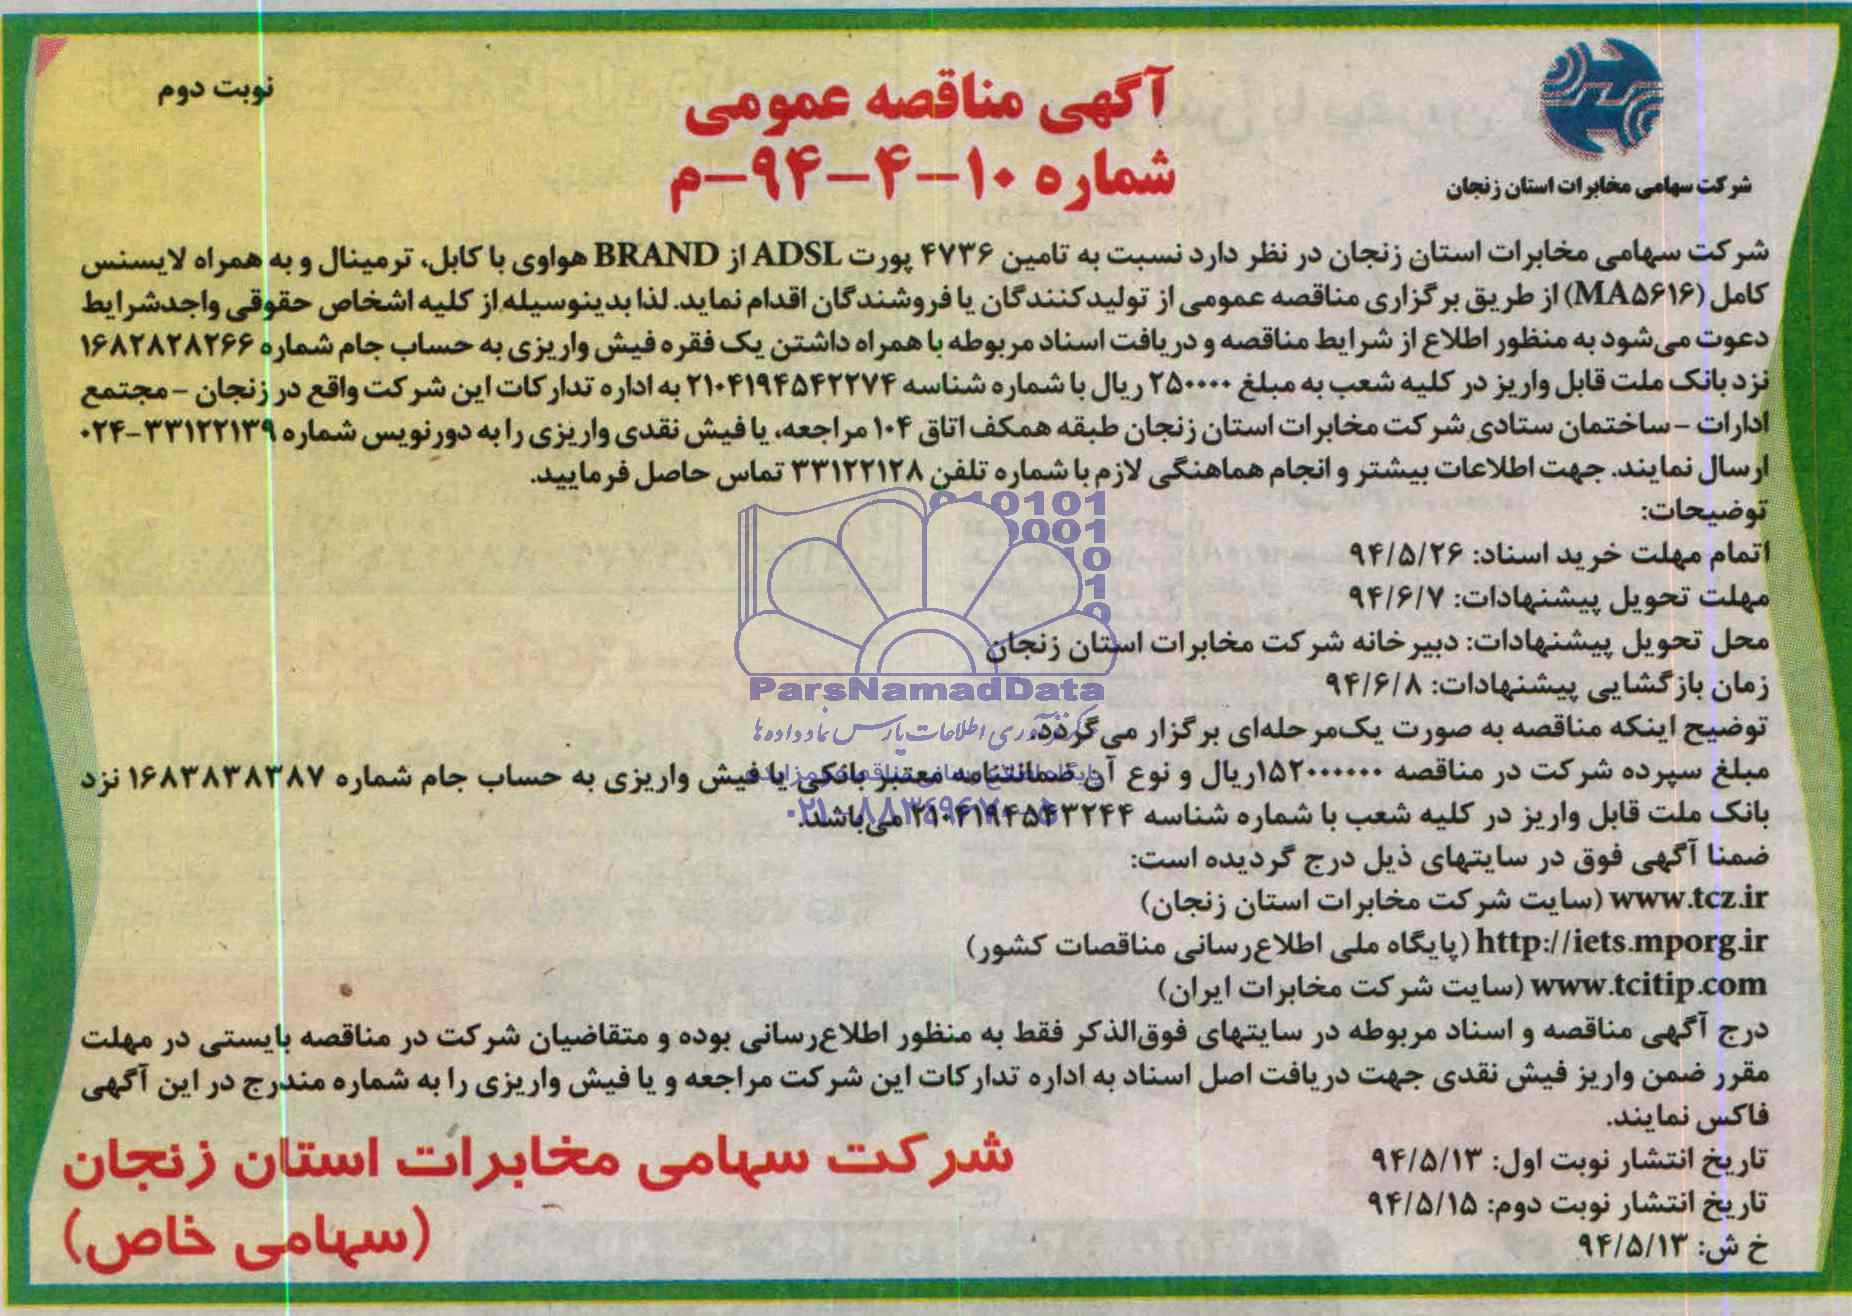 نوبت دوم
آگهی مناقصه عمومی
شماره ۱۰-۴-۹۴-م
شرکت سهامی مخابرات استان زنجان
شرکت سهامی مخابرات استان زنجان در نظر دارد نسبت به تامین ۴۷۳۶ پورت ADSL از BRAND هواوی با کابل، ترمینال و به همراه لایسنس
کامل (MA۵۶۱۶) از طریق برگزاری مناقصه عمومی از تولیدکنندگان یا فروشندگان اقدام نماید. لذا بدینوسیله از کلیه اشخاص حقوقی واجدشرایط
دعوت می‌شود به منظور اطلاع از شرایط مناقصه و دریافت اسناد مربوطه با همراه داشتن یک فقره فیش واریزی به حساب جام شماره ۱۶۸۲۸۲۸۲۶۶
نزد بانک ملت قابل واریز در کلیه شعب به مبلغ ۲۵۰۰۰۰ ریال با شماره شناسه ۲۱۰۴۱۹۴۵۴۲۲۷۴ به اداره تدارکات این شرکت واقع در زنجان - مجتمع
ادارات - ساختمان ستادی شرکت مخابرات استان زنجان طبقه همکف اتاق ۱۰۴ مراجعه، یا فیش نقدی واریزی را به دورنویس شماره ۳۳۱۲۲۱۳۹-۰۲۴
ارسال نمایند. جهت اطلاعات بیشتر و انجام هماهنگی لازم با شماره تلفن ۳۳۱۲۲۱۲۸ تماس حاصل فرمایید.
توضیحات:
اتمام مهلت خرید اسناد: ۹۴/۵/۲۶
مهلت تحویل پیشنهادات: ۹۴/۶/۷
محل تحویل پیشنهادات: دبیرخانه شرکت مخابرات استان زنجان
زمان بازگشایی پیشنهادات: ۹۴/۶/۸
توضیح اینکه مناقصه به صورت یک‌مرحله‌ای برگزار می‌گردد.
مبلغ سپرده شرکت در مناقصه ۱۵۲۰۰۰۰۰۰ریال و نوع آن ضمانتنامه معتبر بانکی یا فیش واریزی به حساب جام شماره ۱۶۸۳۸۳۸۳۸۷ نزد
بانک ملت قابل واریز در کلیه شعب با شماره شناسه ۲۱۰۴۱۹۴۵۴۳۲۴۴ می‌باشد.
ضمنا آگهی فوق در سایتهای ذیل درج گردیده است:
www.tcz.ir (سایت شرکت مخابرات استان زنجان)
http://iets.mporg.ir (پایگاه ملی اطلاع‌رسانی مناقصات کشور)
www.tcitip.com (سایت شرکت مخابرات ایران)
درج آگهی مناقصه و اسناد مربوطه در سایتهای فوق‌الذکر فقط به منظور اطلاع‌رسانی بوده و متقاضیان شرکت در مناقصه بایستی در مهلت
مقرر ضمن واریز فیش نقدی جهت دریافت اصل اسناد به اداره تدارکات این شرکت مراجعه و یا فیش واریزی را به شماره مندرج در این آگهی
فاکس نمایند.
تاریخ انتشار نوبت اول: ۹۴/۵/۱۳
تاریخ انتشار نوبت دوم: ۹۴/۵/۱۵
خ ش: ۹۴/۵/۱۳
شرکت سهامی مخابرات استان زنجان
(سهامی خاص)
ParsNamadData